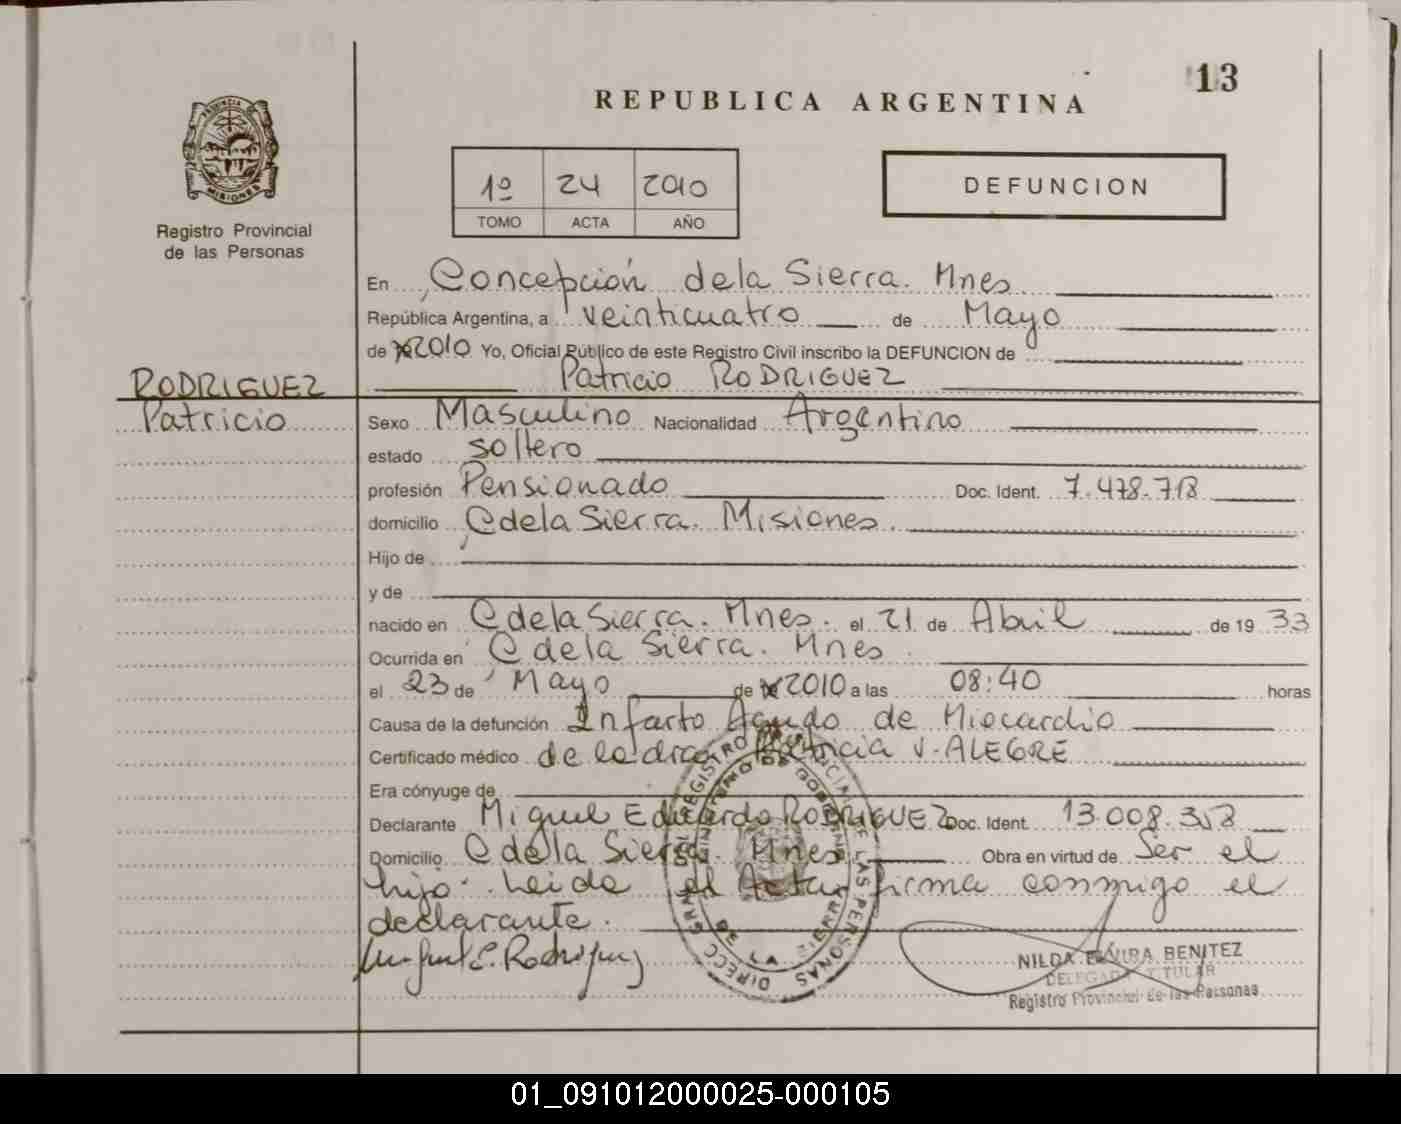 13
REPUBLICA ARGENTINA
PROVINCIA DE
MISIONES
Registro Provincial
de las Personas
1º 24 2010
TOMO ACTA AÑO
DEFUNCION
En Concepción de la Sierra. Mnes
República Argentina, a veinticuatro de Mayo
de 2010 Yo, Oficial Público de este Registro Civil inscribo la DEFUNCION de
Patricio RODRIGUEZ
RODRIGUEZ
Patricio
Sexo Masculino Nacionalidad Argentino
estado soltero
profesión Pensionado Doc. Ident. 7.478.713
domicilio C de la Sierra. Misiones
Hijo de
y de
nacido en C de la Sierra. Mnes. el 21 de Abril de 19 33
Ocurrida en C de la Sierra. Mnes
el 23 de Mayo de 2010 a las 08:40 horas
Causa de la defunción Infarto Agudo de Miocardio
Certificado médico de la dra. Patricia V. ALEGRE
Era cónyuge de
Declarante Miguel Eduardo RODRIGUEZ Doc. Ident. 13.008.353
Domicilio C de la Sierra. Mnes Obra en virtud de Ser el
hijo. Leida el Acta firma conmigo el
declarante.
Miguel E. Rodriguez
NILDA ELVIRA BENITEZ
DELEGADA TITULAR
Registro Provincial de las Personas
01_091012000025-000105